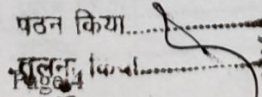 पठन किया..................
मूलन किया..................
Page 4